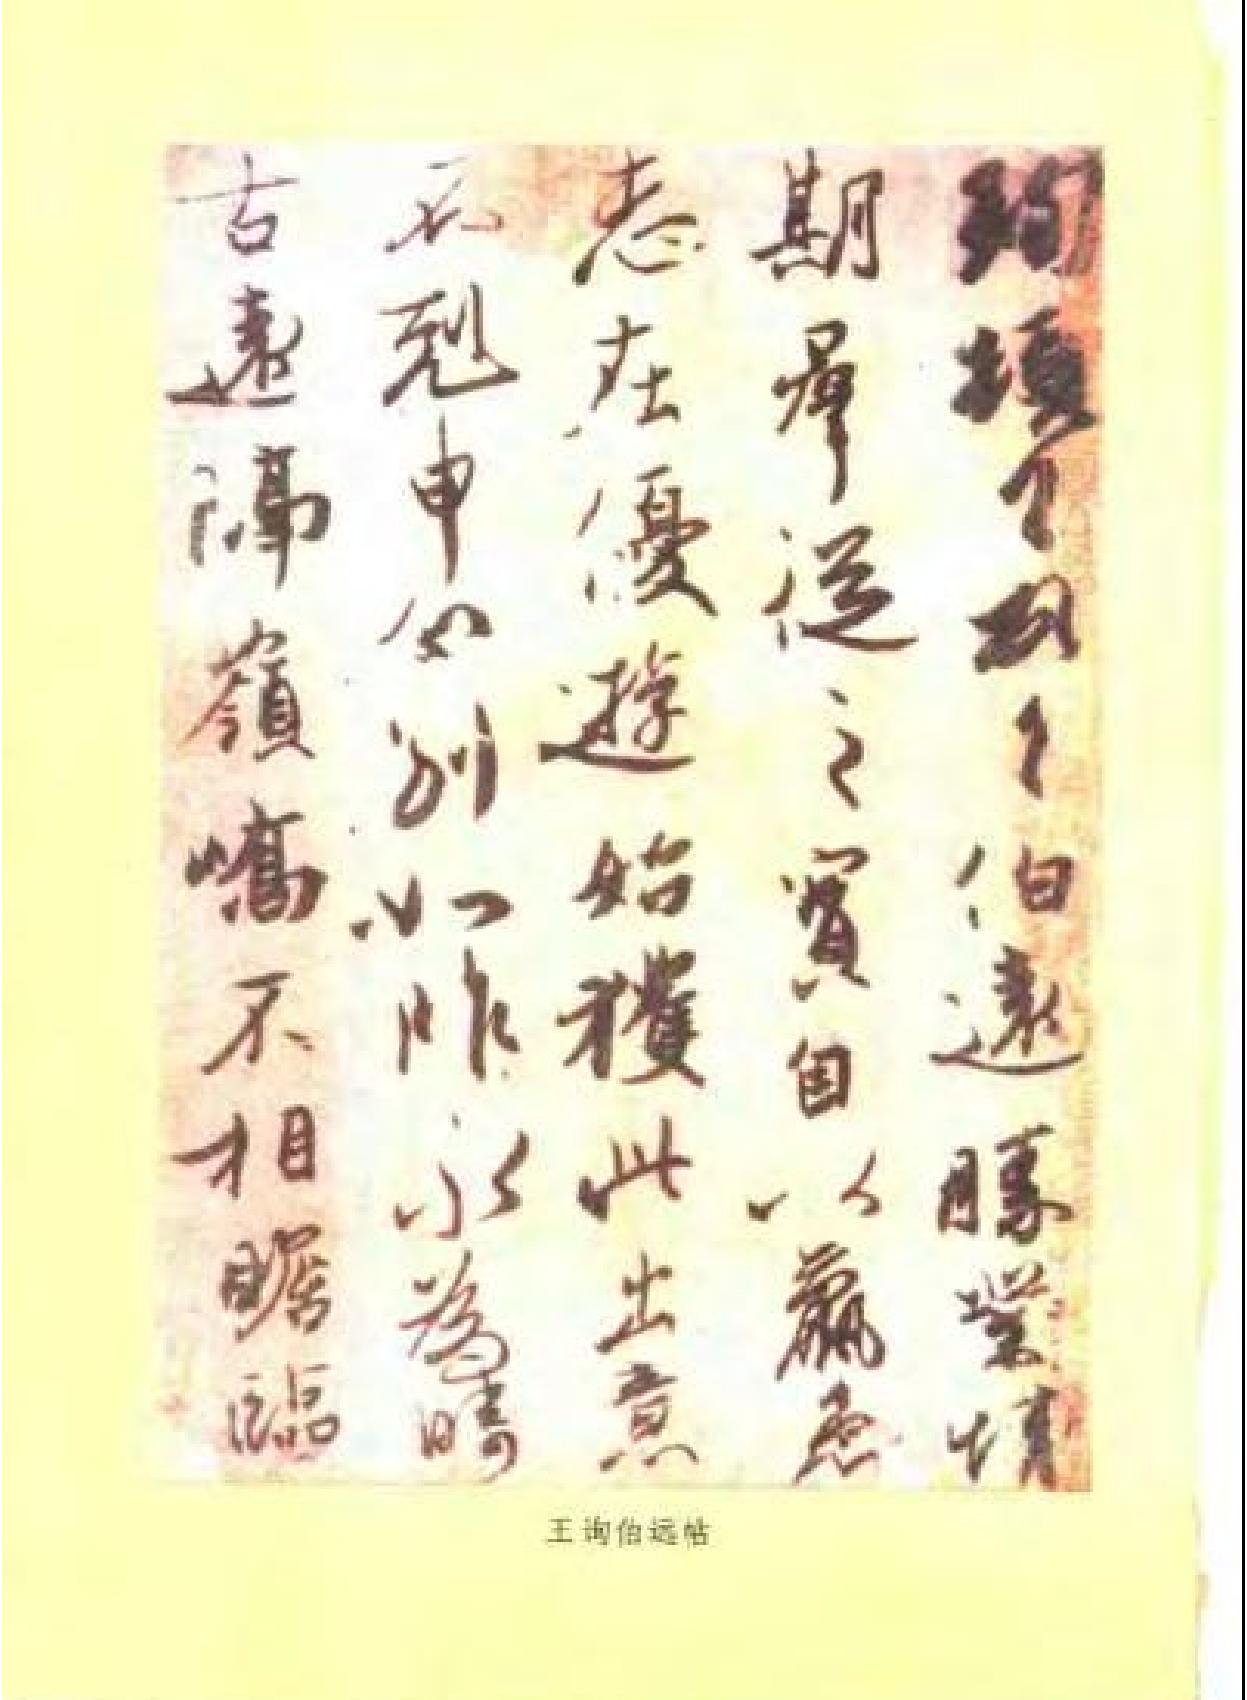 珣頓首頓首伯遠勝業情
期群從之寶自以羸患
志在優遊始獲此出意
不剋申分別如昨永為疇
古遠隔嶺嶠不相瞻臨
王询伯远帖